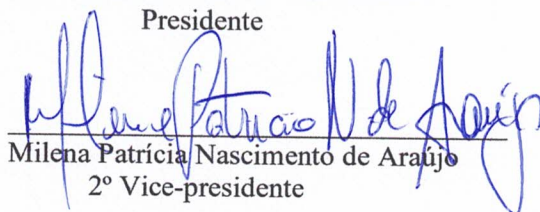 Presidente
Milena Patricia N de Araújo
Milena Patrícia Nascimento de Araújo
2º Vice-presidente